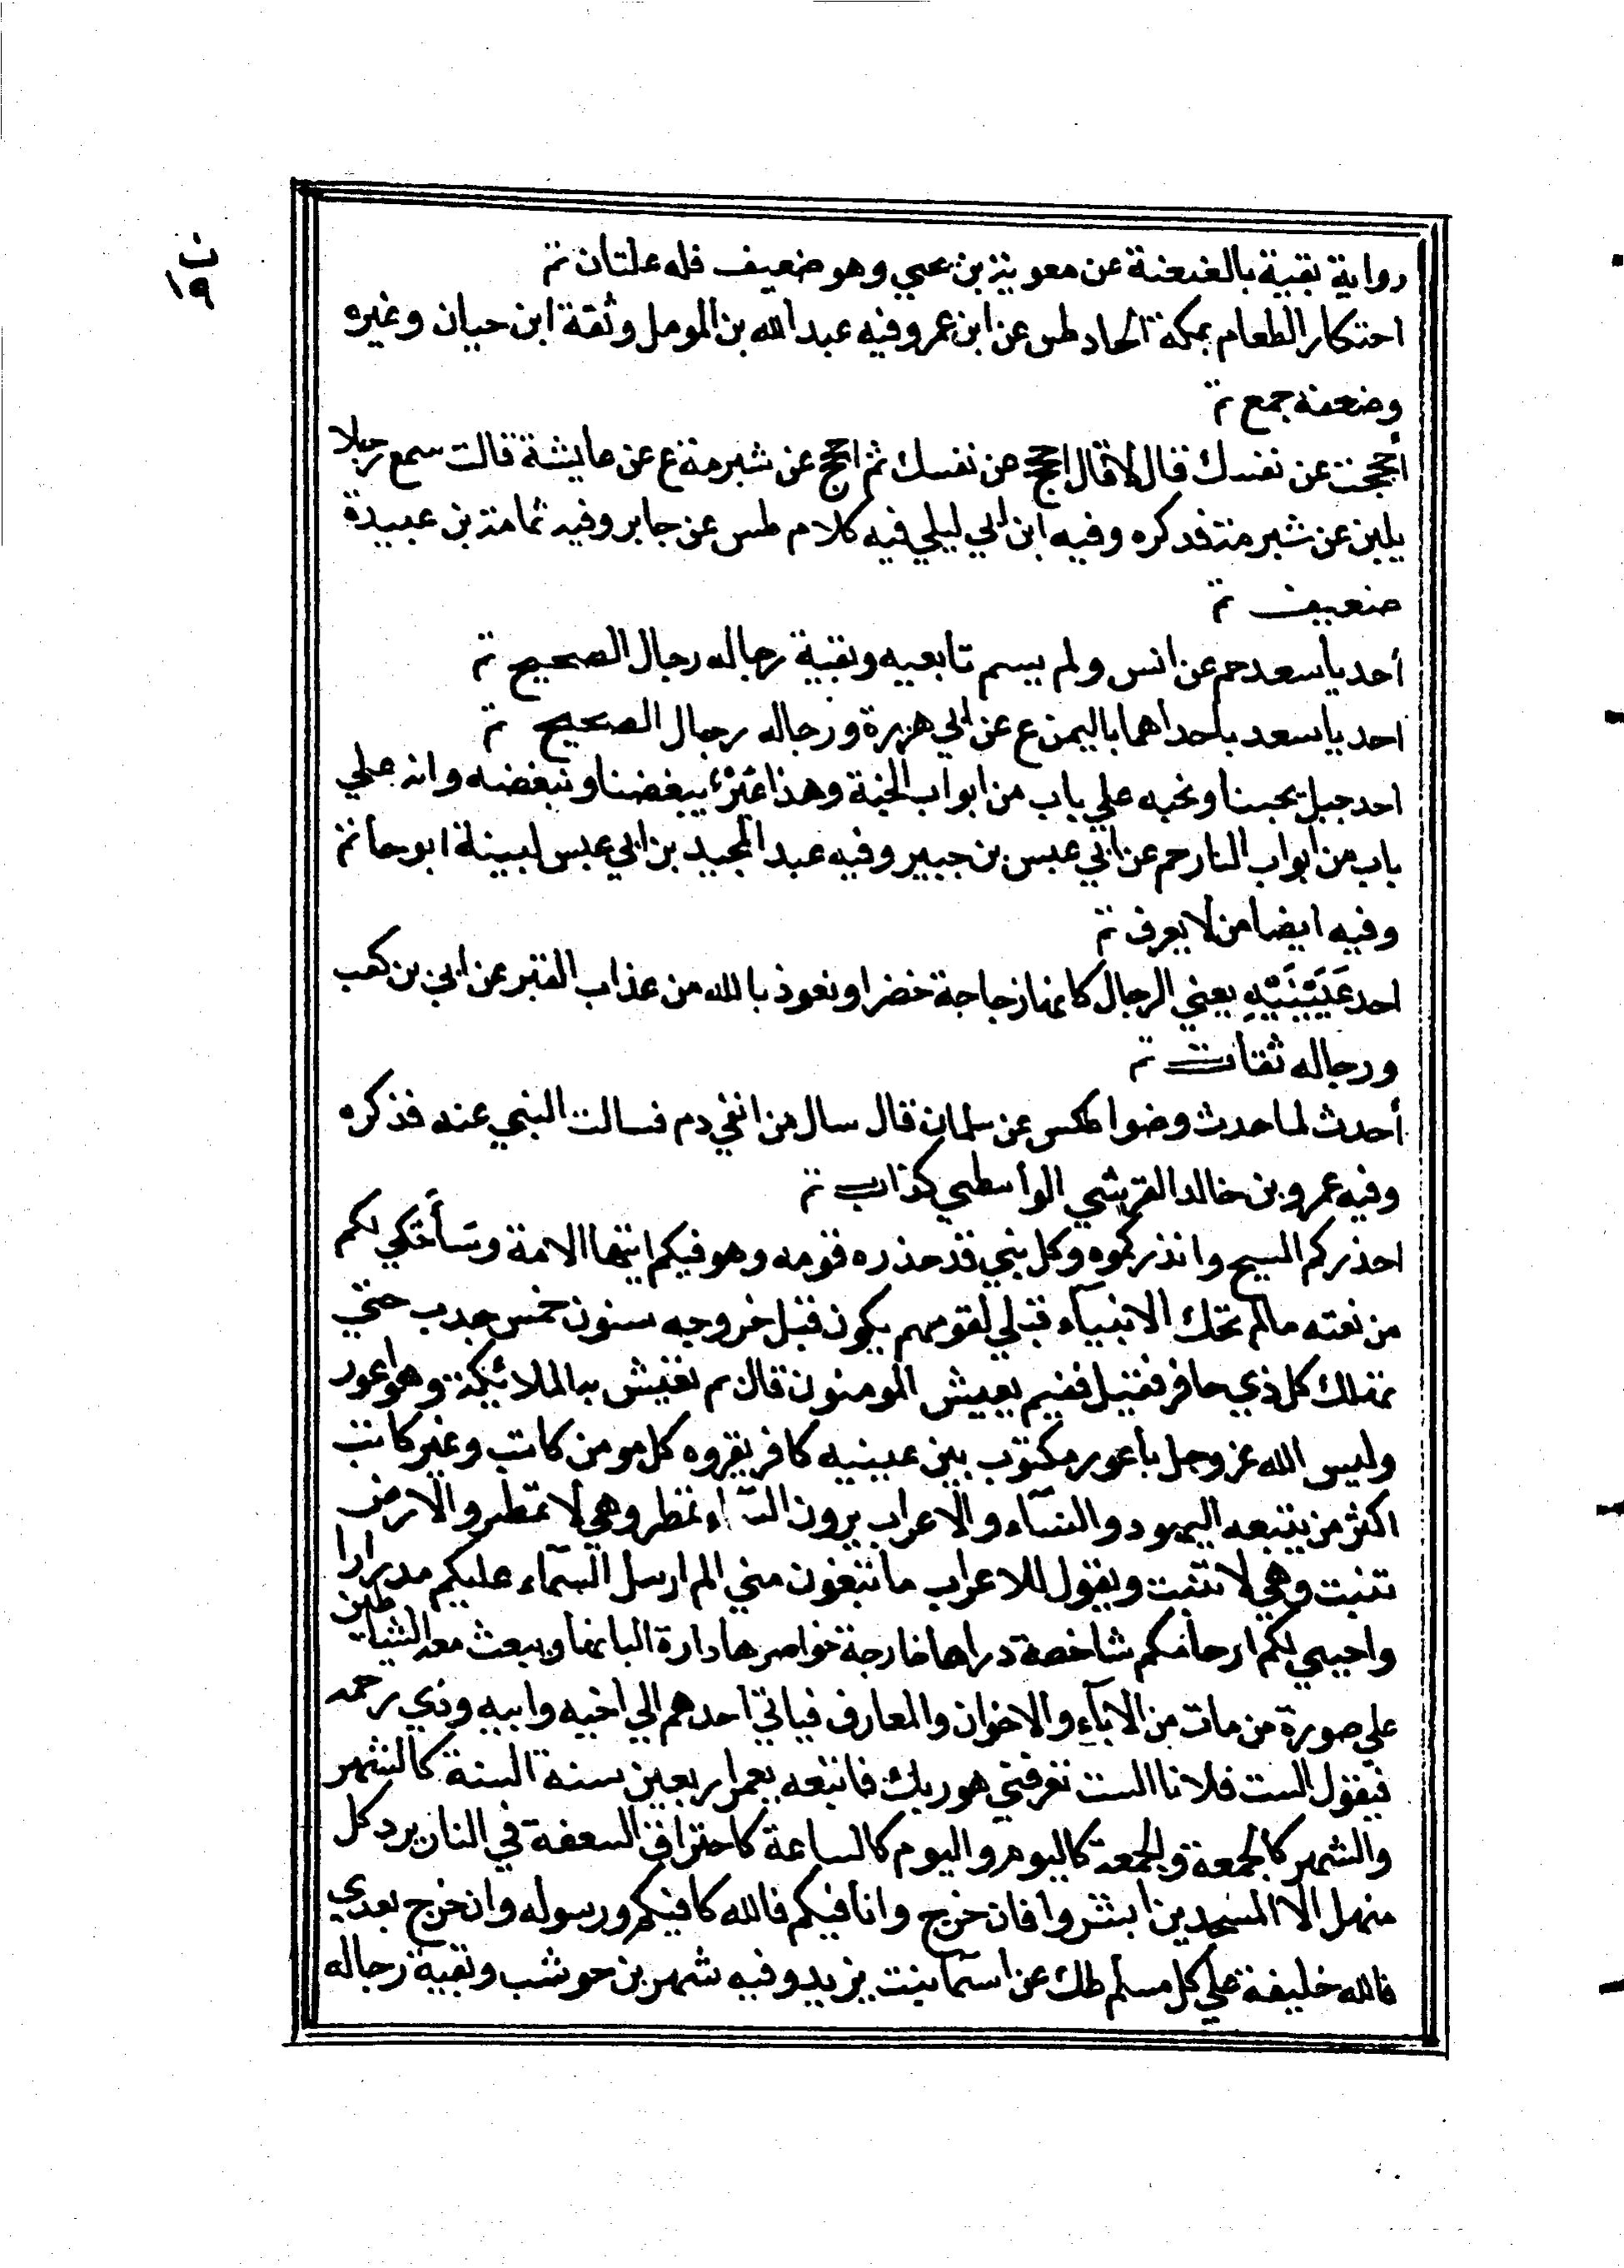 ن
١٩
رواية بقية بالعنعنة عن معوية بن يحيي وهو ضعيف فله علتان تم
احتكار الطعام بمكة الحاد طس عن ابن عمر وفيه عبد الله بن المومل وثقة ابن حبان وغيره
وضعفه جمع تم
أحججت عن نفسك قال لا قال احجج عن نفسك ثم احجج عن شبرمة ع عن عايشة قالت سمع رجلا
يلبي عن شبرمة فذكره وفيه ابن ابي ليلي فيه كلام طس عن جابر وفيه ثمامة بن عبيدة
ضعيف تم
أحد ياسعد حم عن انس ولم يسم تابعيه وبقية رجاله رجال الصحيح تم
احد ياسعد باحداهما باليمن ع عن ابي هريرة ورجاله رجال الصحيح تم
احد جبل يحبنا ونحبه علي باب من ابواب الجنة وهذا عَيْرٌ يبغضنا ونبغضه وانه علي
باب من ابواب النار حم عن ابي عبس بن جبير وفيه عبد المجيد بن ابي عبس لينه ابو حاتم
وفيه ايضا من لا يعرف تم
احد عَيْنَيْهِ يعني الرجال كانها زجاجة خضرا ونعوذ بالله من عذاب القبر عن ابي بن كعب
ورجاله ثقات تم
أحدث لما حدث وضوا طكس عن سلمان قال سال من انفي دم فسالت النبي عنه فذكره
وفيه عمرو بن خالد القريشي الواسطي كذاب تم
احذركم المسيح وانذركموه وكل نبي قد حذره قومه وهو فيكم ايتها الامة وسأحكي لكم
من نعته مالم تحك الانبياء قبلي لقومهم يكون قبل خروجه سنون خمس جدب حتي
تهلك كل ذي حافر فقيل ففيم يعيش المومنون قال بم تعيش به الملائكة وهو اعور
وليس الله عز وجل باعور مكتوب بين عينيه كافر يقروه كل مومن كاتب وغير كاتب
اكثر من يتبعه اليهود والنساء والاعراب يرون السماء تمطر وهي لا تمطر والارض
تنبت وهي لا تنبت ويقول للاعراب ما تبغون مني الم ارسل السماء عليكم مدرارا
واحيي لكم ارحامكم شاخصة دراها خارجة خواصرها دارة البانها ويبعث معه الشياطين
علي صورة من مات من الاباء والاخوان والمعارف فياتي احدهم الي اخيه وابيه وذي رحمه
فيقول الست فلانا الست تعرفني هو ربك فاتبعه يعمر اربعين سنة السنة كالشهر
والشهر كالجمعة والجمعة كاليوم واليوم كالساعة كاحتراق السعفة في النار يرد كل
منهل الا المسجدين ابشروا فان خرج وانا فيكم فالله كافيكم ورسوله وان خرج بعدي
فالله خليفة علي كل مسلم طك عن اسما بنت يزيد وفيه شهر بن حوشب وبقية رجاله